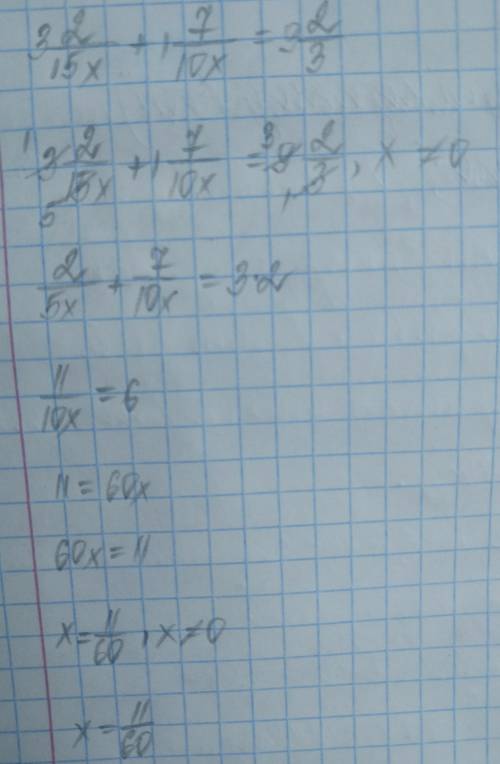 3 2/15x + 1 7/10x = 3 2/3
1 3 2/15x 5 + 1 7/10x = 3 9 2/3 1, x ≠ 0
2/5x + 7/10x = 3·2
11/10x = 6
11 = 60x
60x = 11
x = 11/60, x ≠ 0
x = 11/60